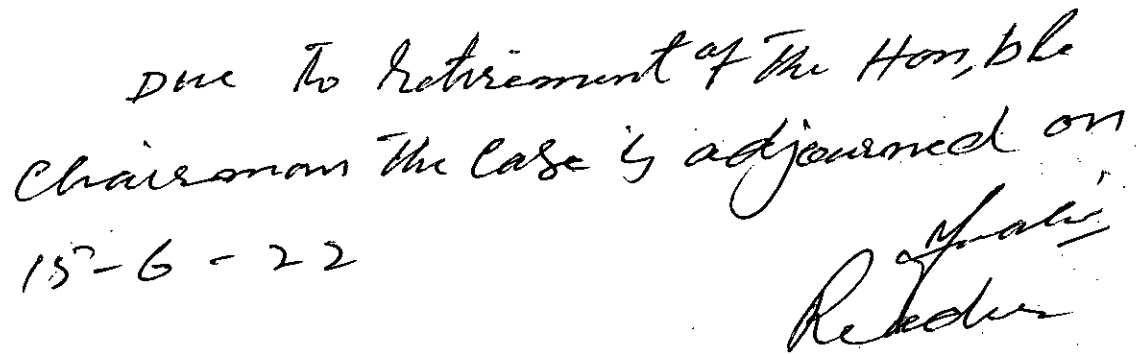 Due To Retirement of The Hon,ble
Chairman The Case is adjourned on
15-6-22
Reader